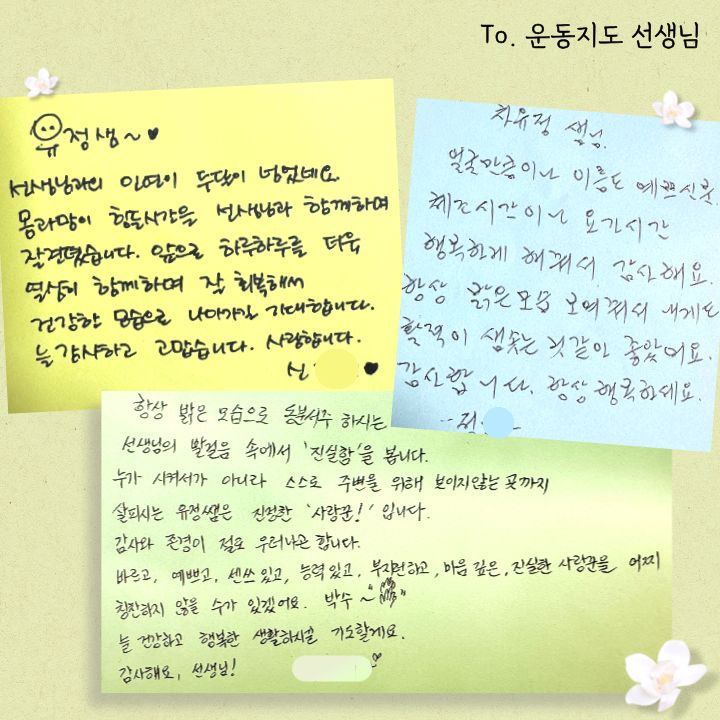 To. 운동지도 선생님
유정샘~♥
선생님과의 인연이 두달이 넘었네요.
몸과맘이 힘든시간을 선생님과 함께하며
잘견뎠습니다. 앞으로 하루하루를 더욱
열심히 함께하며 잘 회복해서
건강한 모습으로 나아가길 기대합니다.
늘 감사하고 고맙습니다. 사랑합니다.
신 ♥
차유정 샘님.
얼굴만큼이나 이름도 예쁘신분.
체조시간이나 요가시간
행복하게 해줘서 감사해요.
항상 밝은모습 보여줘서 내게도
활력이 샘솟는 것같아 좋았어요.
감사합니다. 항상행복하세요.
항상 밝은 모습으로 동분서주 하시는
선생님의 발걸음 속에서 '진실함'을 봅니다.
누가 시켜서가 아니라 스스로 주변을 위해 보이지않는 곳까지
살피시는 유정쌤은 진정한 '사랑꾼!' 입니다.
감사와 존경이 절로 우러나곤 합니다.
바르고, 예쁘고, 센쓰있고, 능력있고, 부지런하고, 마음 깊은, 진실한 사랑꾼을 어찌
칭찬하지 않을 수가 있겠어요. 박수~
늘 건강하고 행복한 생활하시길 기도할게요.
감사해요, 선생님!